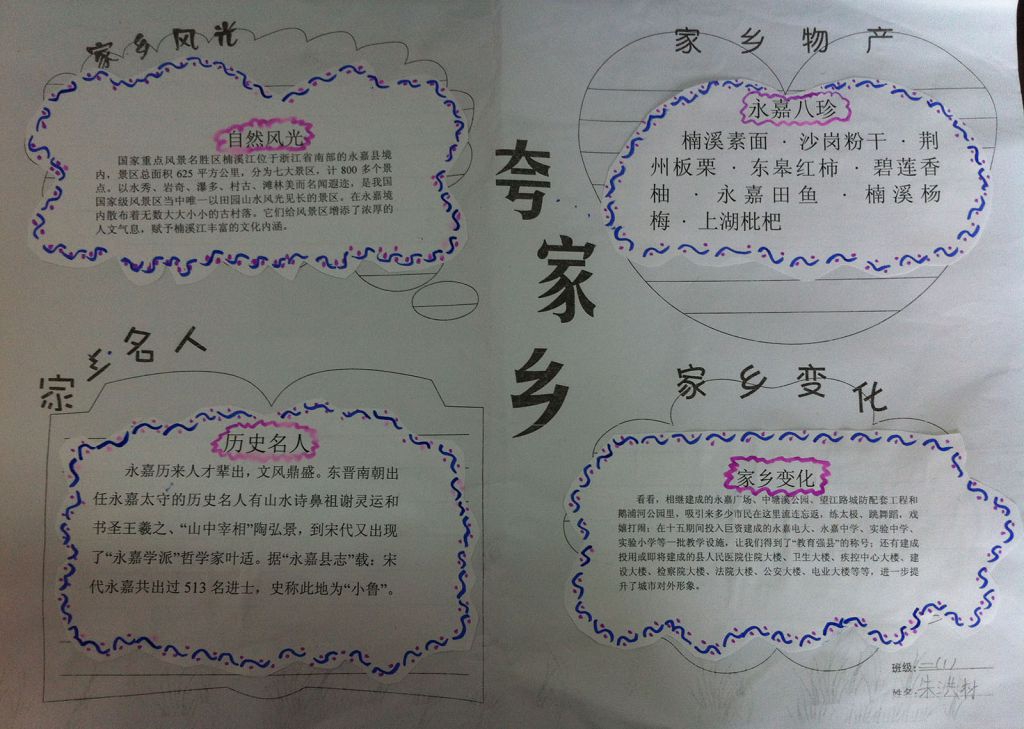 家乡风光
自然风光
国家重点风景名胜区楠溪江位于浙江省南部的永嘉县境
内，景区总面积 625 平方公里，分为七大景区，计 800 多个景
点。以水秀、岩奇、瀑多、村古、滩林美而名闻遐迩，是我国
国家级风景区当中唯一以田园山水风光见长的景区。在永嘉境
内散布着无数大大小小的古村落。它们给风景区增添了浓厚的
人文气息，赋予楠溪江丰富的文化内涵。
夸家乡
家乡物产
永嘉八珍
楠溪素面·沙岗粉干·荆
州板栗·东皋红柿·碧莲香
柚·永嘉田鱼·楠溪杨
梅·上湖枇杷
家乡名人
历史名人
永嘉历来人才辈出，文风鼎盛。东晋南朝出
任永嘉太守的历史名人有山水诗鼻祖谢灵运和
书圣王羲之、“山中宰相”陶弘景，到宋代又出现
了“永嘉学派”哲学家叶适。据“永嘉县志”载：宋
代永嘉共出过 513 名进士，史称此地为“小鲁”。
家乡变化
家乡变化
看看，相继建成的永嘉广场、中塘溪公园、望江路城防配套工程和
鹅浦河公园里，吸引来多少市民在这里流连忘返，练太极、跳舞蹈、戏
嬉打闹；在十五期间投入巨资建成的永嘉电大、永嘉中学、实验中学、
实验小学等一批教学设施，让我们得到了“教育强县”的称号；还有建成
投用或即将建成的县人民医院住院大楼、卫生大楼、疾控中心大楼、建
设大楼、检察院大楼、法院大楼、公安大楼、电业大楼等等，进一步提
升了城市对外形象。
班级：二(1)
姓名：朱洪材